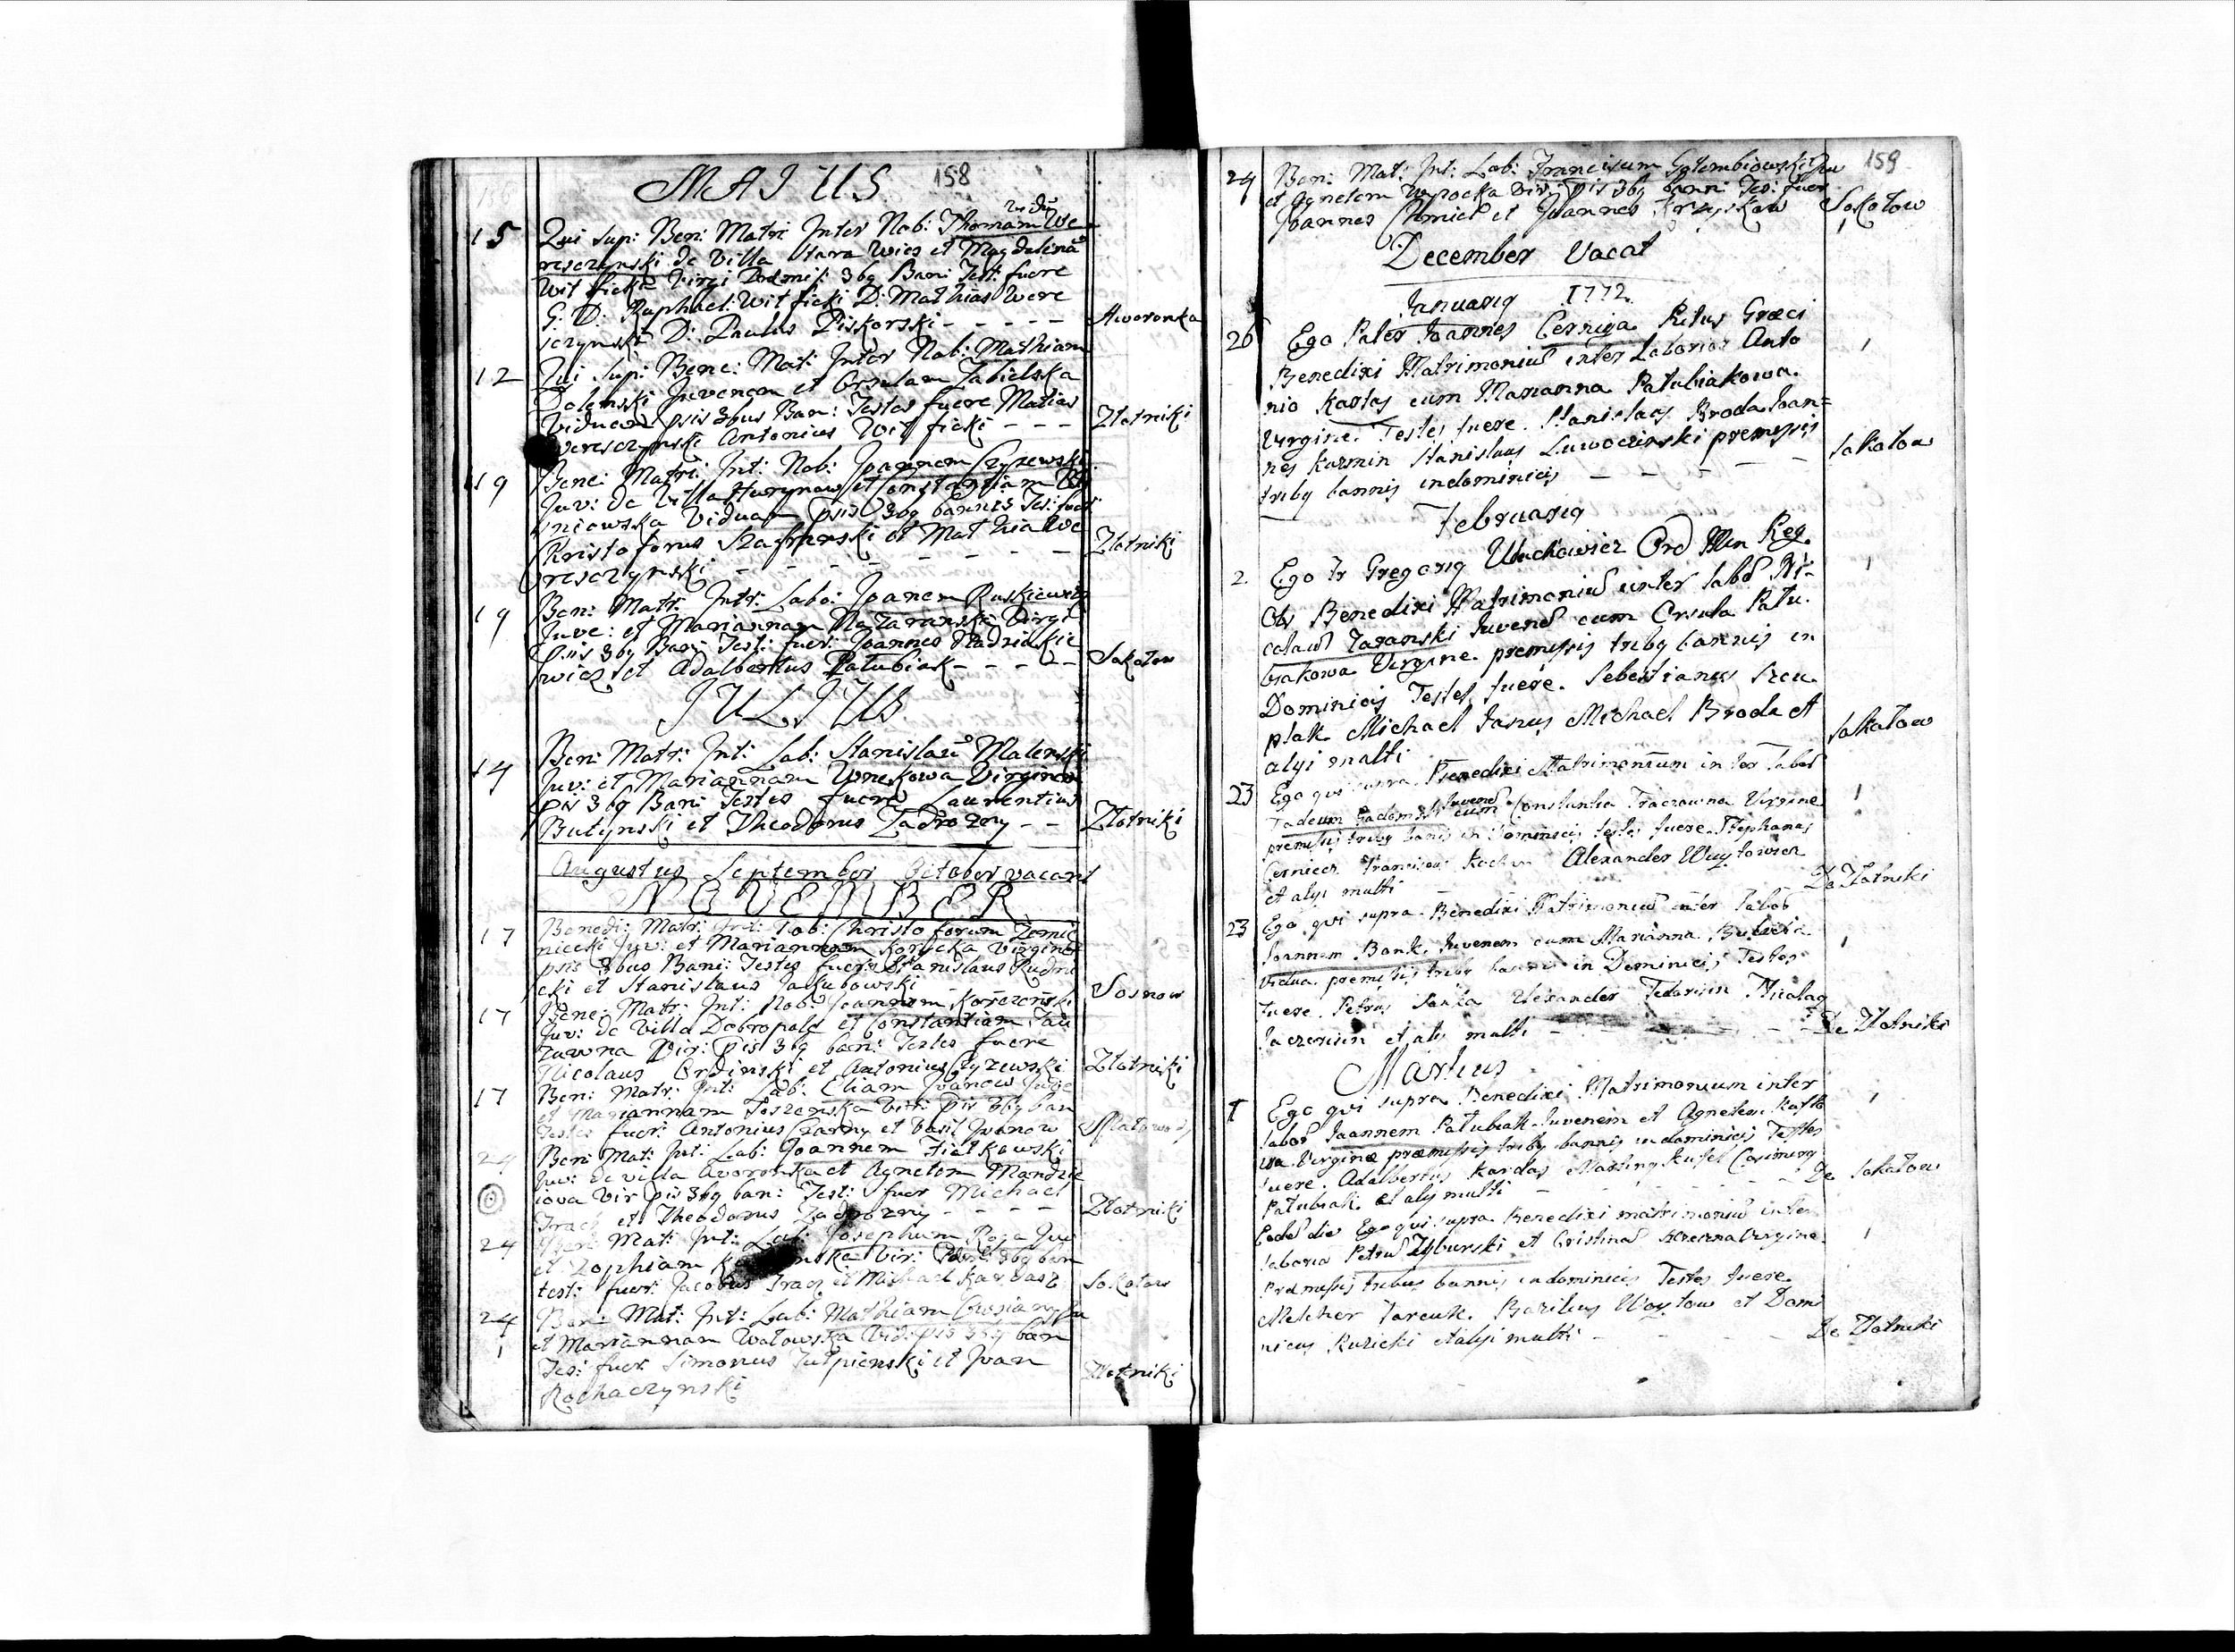 MAJUS. 158
15 Qui sup: Ben: Matr: Inter Nob: Thomam We
vidu
resczynski de Villa Stara Wies et Magdalenā
Witficka Virgi Prdmis: 3bq Ban: Test: fuere
G: D: Raphael: Witficki D: Mathias Were
sczynski D: Paulus Piskorski - - - - - Aworonka
12 Qui Sup: Bene: Mat: Inter Nob: Mathiam
Dolenski Juvenem et Orsulam Zabielska
Viduam psis 3bus Ban: Testes fuere Matias
Weresczynski Antonius Witficki - - - Zlotniki
19 Bene: Matri: Int: Nob: Joannem Czyzewski
Juv: de Villa Hurynow et Constantiam
niowska Viduam psis 3bq bannis Tes: fuer
Kristoforus Szafranski et Mathia We
resczynski - - - - - - Zlotniki
19 Ben: Matr: Intr: Labo: Joanem Ruskiewicz
Juve: et Mariannam Nazaranska Virgi:
Psis 3bq Ban: Test: fuer: Joannes Nadziekie
wicz et Adalbertus Patubiak - - - - Sokołow
JULJUS.
14 Ben: Matr: Int: Lab: Stanislaū Malenski
Juv: et Mariannam Wnekowa Virginem
Pis 3bq Ban: Testes fuere Laurentius
Butynski et Theodorus Zadrozny - - Zlotniki
Augustus September October vacant
NOVEMBER
17 Benedi: Matr: Int: Lab: Christoforum Zomie
niecki Juv: et Mariannam Korycka Virginē
psis 3bus Bani: Testes fuer: Stanislaus Rudni
cki et Stanislaus Jakubowski - - - Sosnow
17 Bene: Matr: Int: Nob: Joannem Korczenski
Juv: de Villa Dobropole et Constantiam Tau
rawna Vir: pis 3bq ban: Testes fuere
Nicolaus Ordinski et Antonius Czyzewski Zlotniki
17 Ben: Matr: Int: Lab: Eliam Joanow Juve
et Mariannam Toszenska Vir: pis 3bq ban
Testes fuer: Antonius Czarny et Vasil Jwanow
24 Ben: Mat: Int: Lab: Joannem Fiatkowski
Juv: de villa Avoronka et Agnetem Mandzie
iowa Vir pis 3bq ban: Test: fuer Michael
Trach et Theodorus Zadrozny - - - - Zlotniki
24 Ben: Mat: Int: Lab: Josephum Roja Juv
et Zophiam Vir: 3bq ban
test: fuer: Jacobus Tracz et Michael Kardasz Sokołow
24 Ben: Mat: Int: Lab: Mathiam Ju
et Mariannam Watowska Vid: pis 3bq ban
Tes: fuer Simonus Tulpienski et Jwan
Rochaczynski Zlotniki
159
24 Ben: Mat: Int: Lab: Francisum Golembiowski Juv
et Agnetem Wysocka Vir: pis 3bq bann: Tes: fuer
Joannes Chmiel et Joannes Sokołow
December Vacat
Januariq 1772
26 Ego Pater Joannes Cerniga Ritus Græci
Benedixi Matrimoniū inter Laborios Anto
nio Kastas cum Marianna Patubiakowa.
Virgine. Testes fuere. Stanislaus Broda Joan=
nes Karmin Stanislaus Lewoczinski premissis
tribq bannis indominicis - - - - - Sokołow
Februariq
2. Ego Fr Gregoriq Unichowicz Ord Min Reg.
Obs Benedixi Matrimoniū inter labō Ni-
colaū Taranski Juvenē cum Orsula Patu.
biakowa Virgine. premissis tribq bannis in
Dominicis Testes fuere. Sebestianus Szcu.
plak Michael Janus Michael Broda et
alyi multi Sokołow
23 Ego qui supra Benedixi Matrimonium inter Labor
Juvenē
Tadeum Gadomski cum Constantia Traczowna Virgine
premissis tribq banis in Dominicis testes fuere. Stephanus
Cerniecz. Franciscus Alexander Wuytowicz
et alyi multi - De Zlotniki
23 Ego qui supra Benedixi Matrimoniū inter labō
Joannem Bonk. Juvenem cum Marianna
Vidua. premissis tribq bannis in Dominicis Testes
fuere. Petrus Alexander Fedorisin Nicolaq
et aly multi - - - De Zlotniki
Martius
1 Ego qui supra Benedixi Matrimonium inter
labor Joannem Patubiak Juvenem et Agnetem
wa Virgine præmissis tribq bannis indominicis Testes
fuere. Adalbertus Kardas Martinq Kusel Casimirq
Patubiak. et aly multi - - - De Sokołow
Eodē die Ego qui supra Benedixi matrimoniū inter
laborio Petrū Zyburski et Cristinā Virgine.
Premissis tribus bannis indominicis Testes fuere.
Melcher Tarcuk. Bazilius Woytow et Domi
nicus Ruzicki et alyi multi - - - De Zlotniki